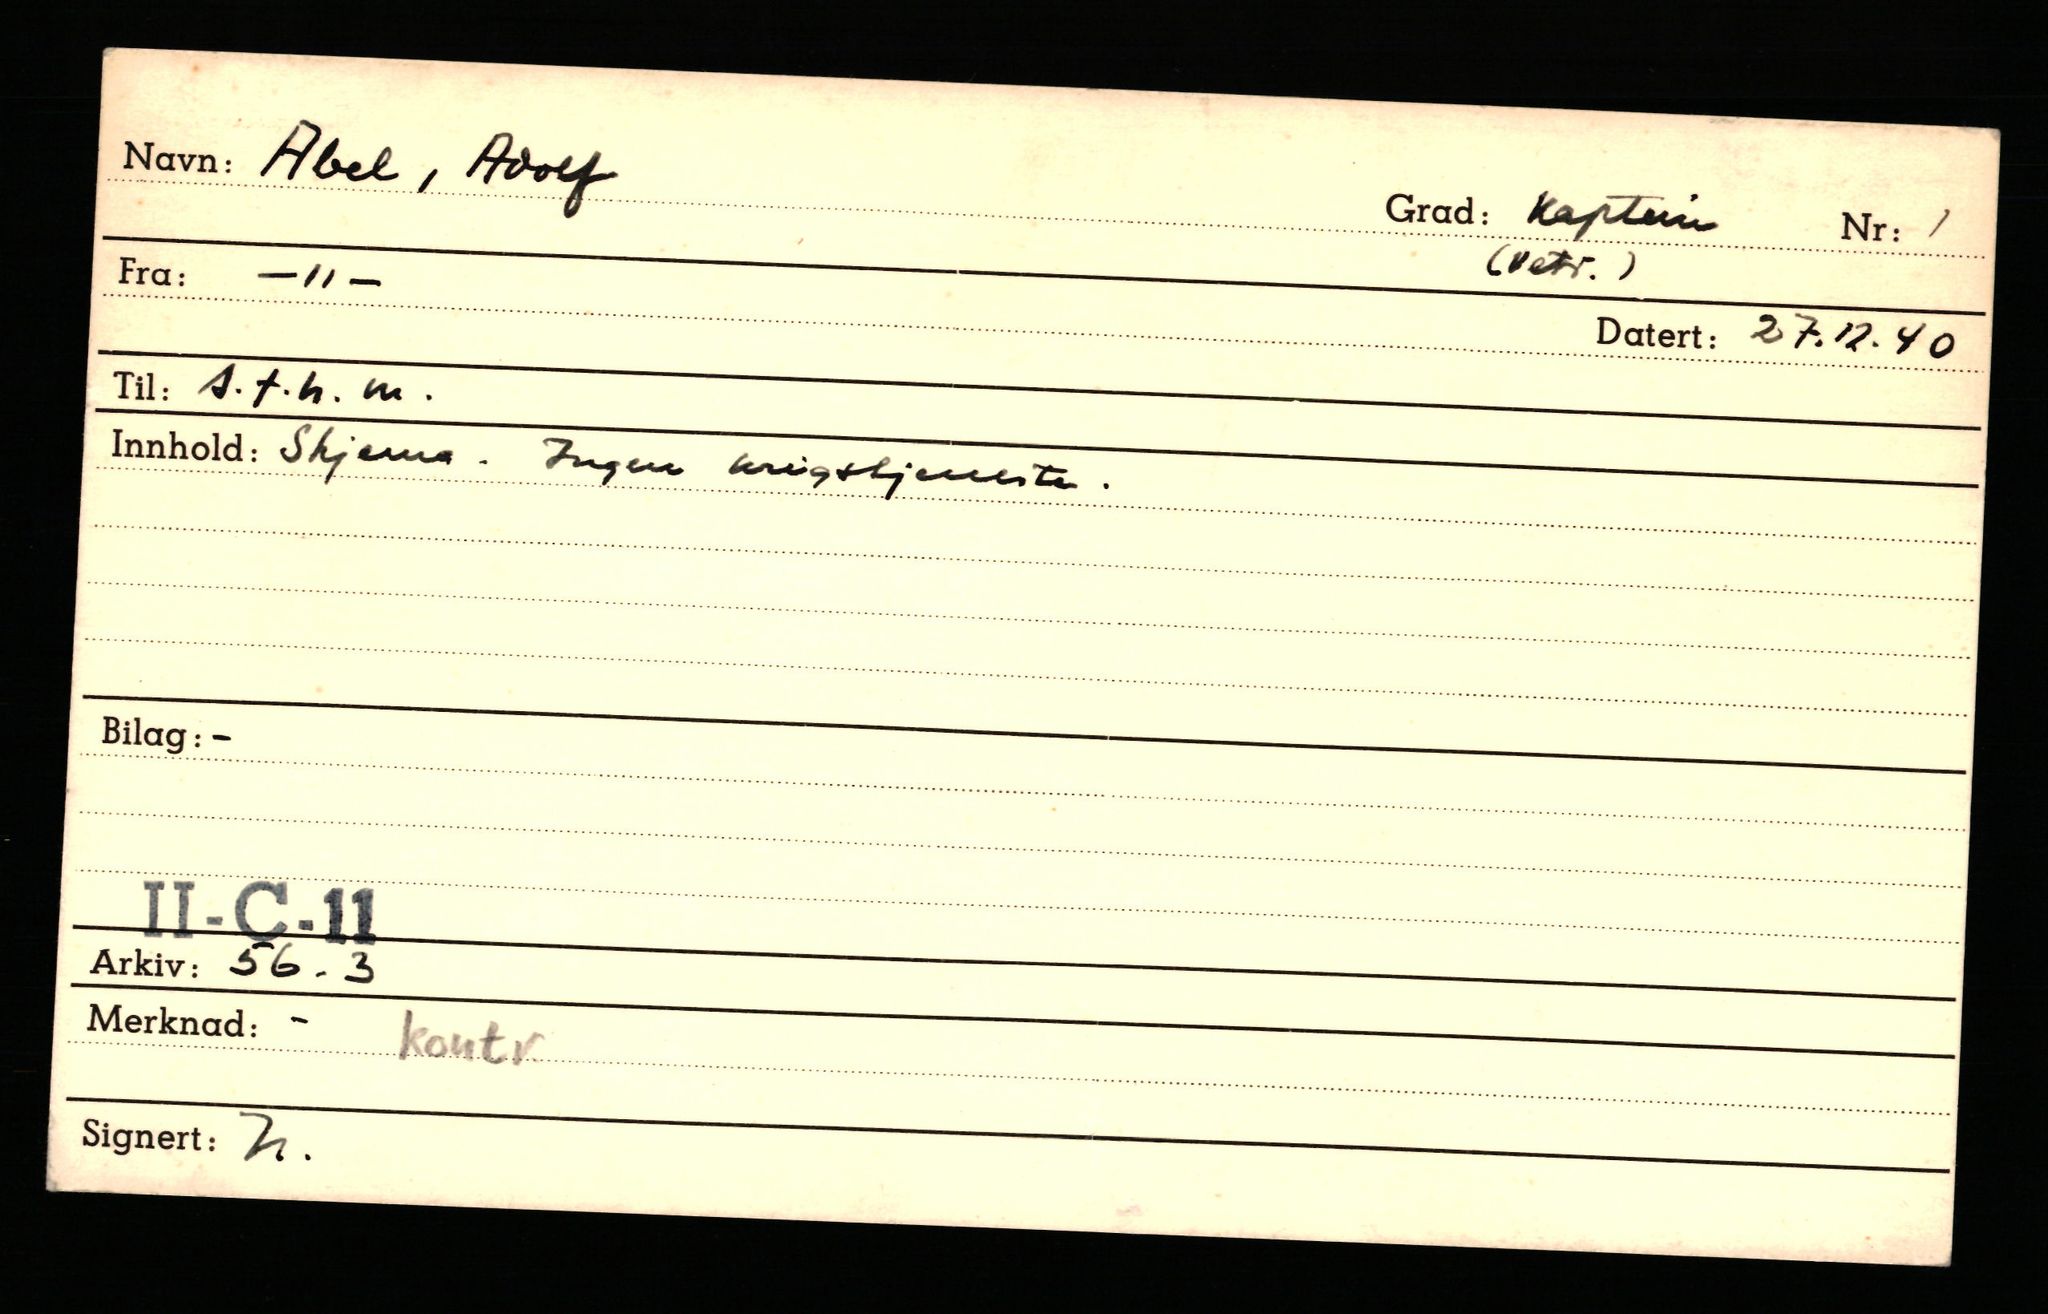 Navn: Abel, Adolf
Grad: Kaptein Nr: 1
(Vetr.)
Fra: —"—
Datert: 27.12.40
Til: S.t.h.m.
Innhold: Skjema. Ingen krigstjeneste.
Bilag: -
II-C-11
Arkiv: 56.3
Merknad: - Kontr.
Signert: